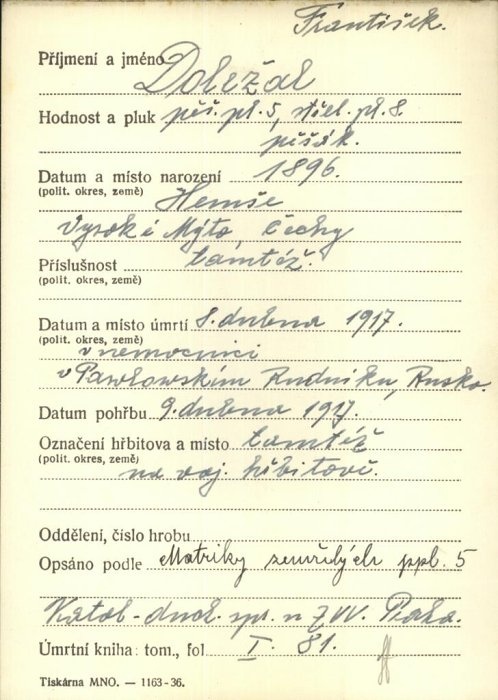 František.
Příjmení a jméno Doležal
Hodnost a pluk pěš. pl. 5, střel. pl. 8.
pěšák.
Datum a místo narození 1896.
(polit. okres, země) Hemže
Vysoké Mýto, Čechy
Příslušnost tamtéž.
(polit. okres, země)
Datum a místo úmrtí 8. dubna 1917.
(polit. okres, země)
v nemocnici
v Pawlowském Rudniku, Rusko.
Datum pohřbu 9. dubna 1917.
Označení hřbitova a místo tamtéž
(polit. okres, země)
na voj. hřbitově.
Oddělení, číslo hrobu
Opsáno podle Matriky zemřelých ppl. 5
Katol. duch. spr. u ZVV. Praha.
Úmrtní kniha: tom., fol I. 81.
Tiskárna MNO. — 1163-36.